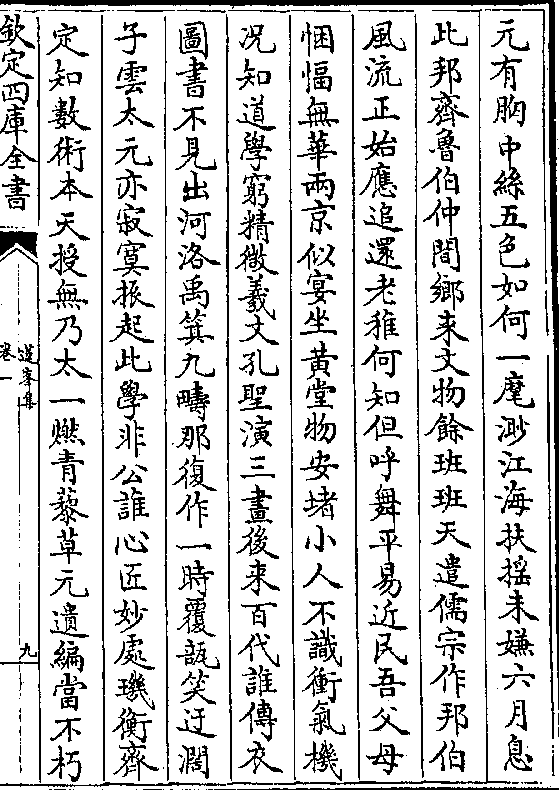 元有胸中絲五色如何一麾渺江海扶揺未嫌六月息
此邦齊魯伯仲間鄉來文物餘班班天遣儒宗作邦伯
風流正始應追還老稚何知但呼舞平易近民吾父母
悃愊無華兩京似宴坐黃堂物安堵小人不識衝氣機
况知道學窮精微羲文孔聖演三畫後來百代誰傳衣
圖書不見出河洛禹箕九疇那復作一時覆瓿笑迂濶
子雲太元亦寂寞振起此學非公誰心匠妙處璣衡齊
定知數術本天授無乃太一燃青藜草元遺編當不朽
欽定四庫全書
卷一
九